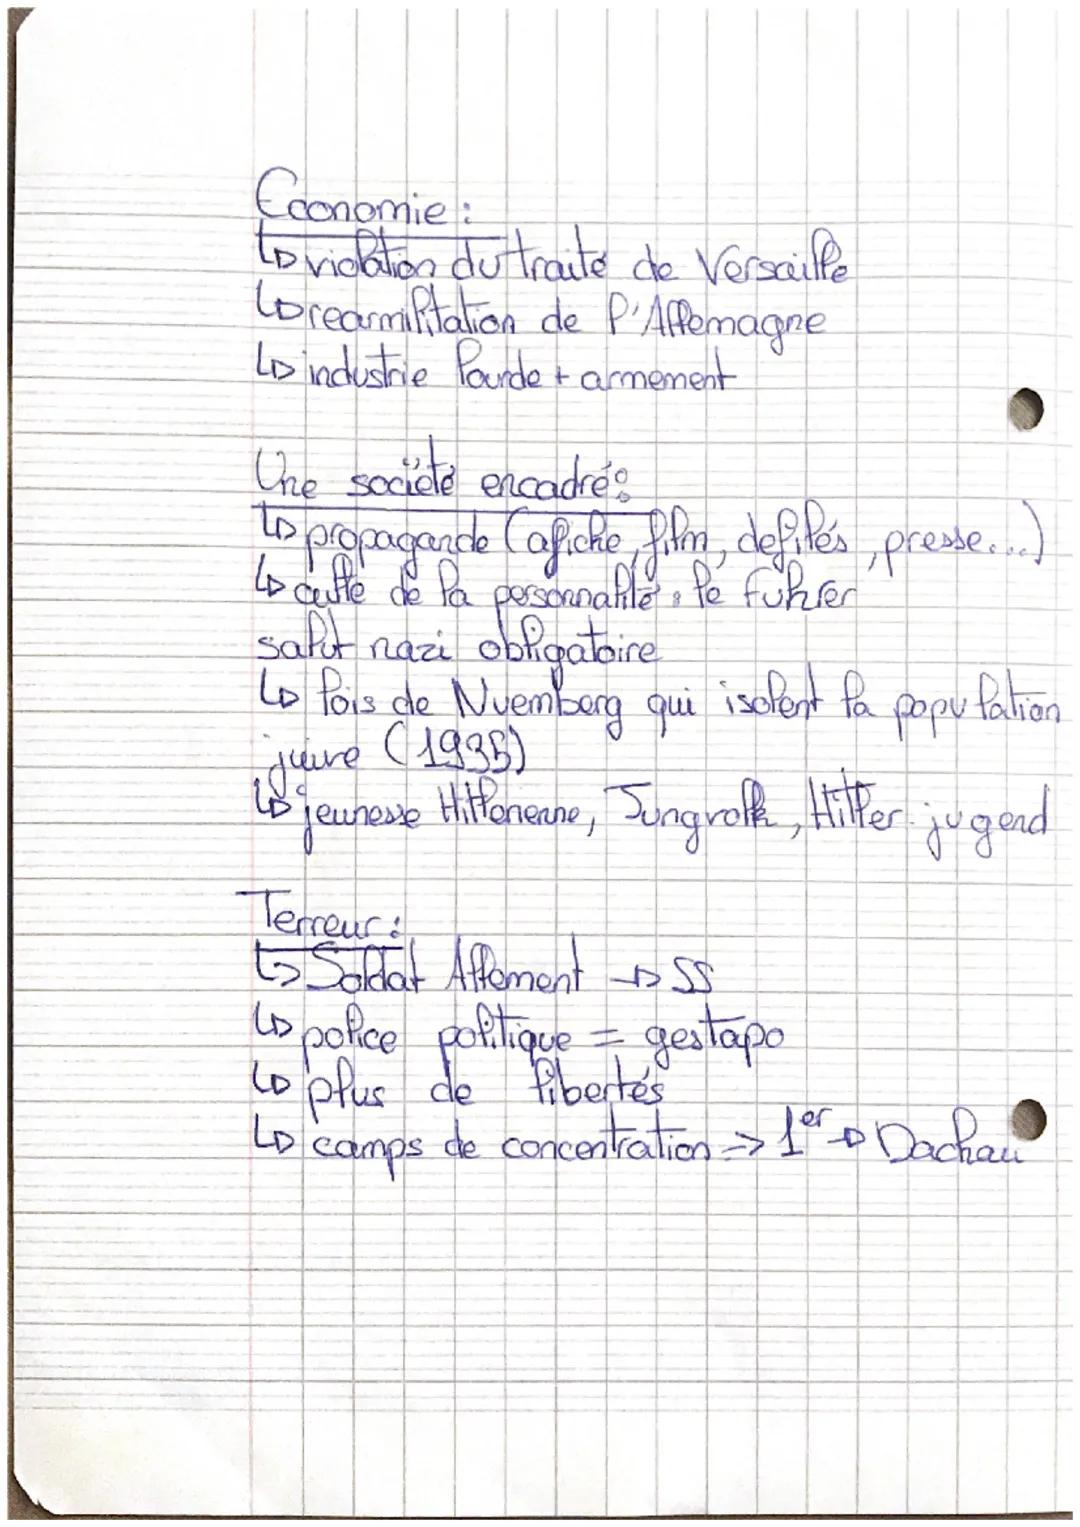 Economie :
↳ violation du traité de Versaille
↳ rearmilitation de l'Allemagne
↳ industrie lourde + armement
Une société encadré :
↳ propagande (afiche, film, defilés, presse...)
↳ culte de la personnalité : le fuhrer
salut nazi obligatoire
↳ lois de Nuemberg qui isolent la population
juive (1935)
↳ jeunesse Hitlerienne, Jungvolk, Hitler-jugend
Terreur :
↳ Soldat Allement → SS
↳ police politique = gestapo
↳ plus de libertés
↳ camps de concentration => 1er → Dachau